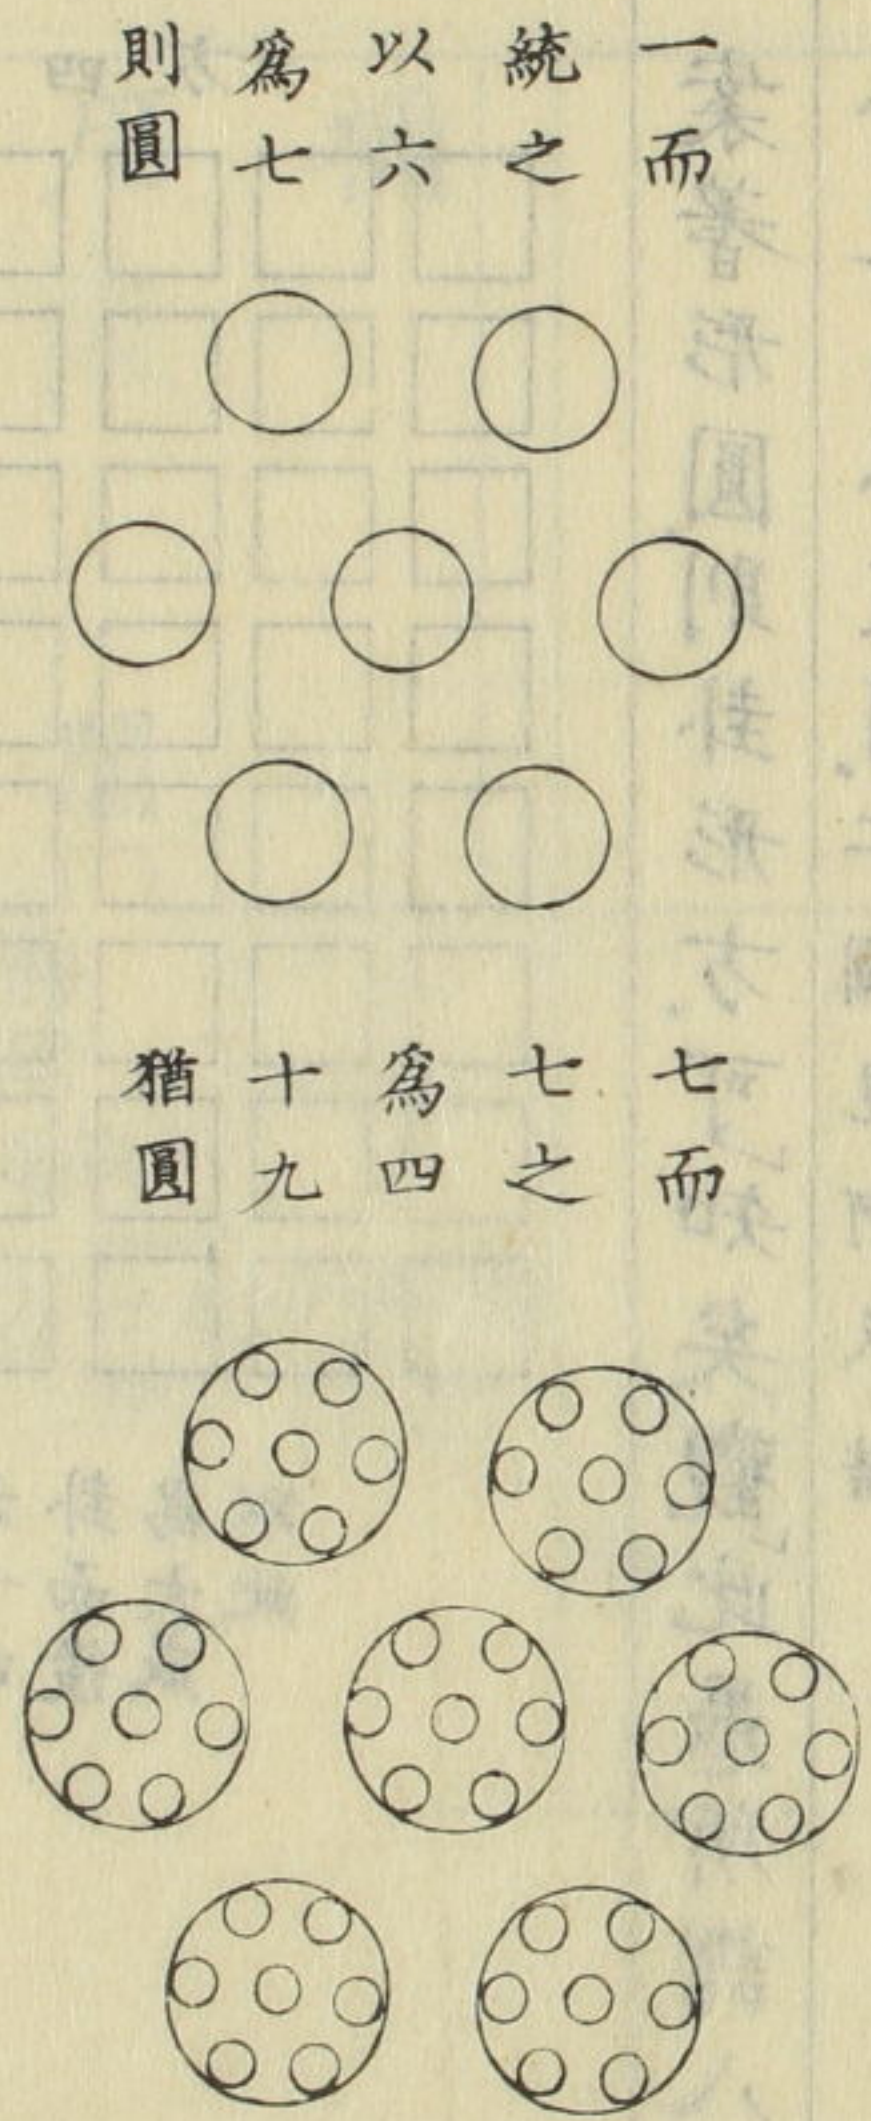 一而
統之
以六
爲七
則圓
七而
七之
爲四
十九
猶圓